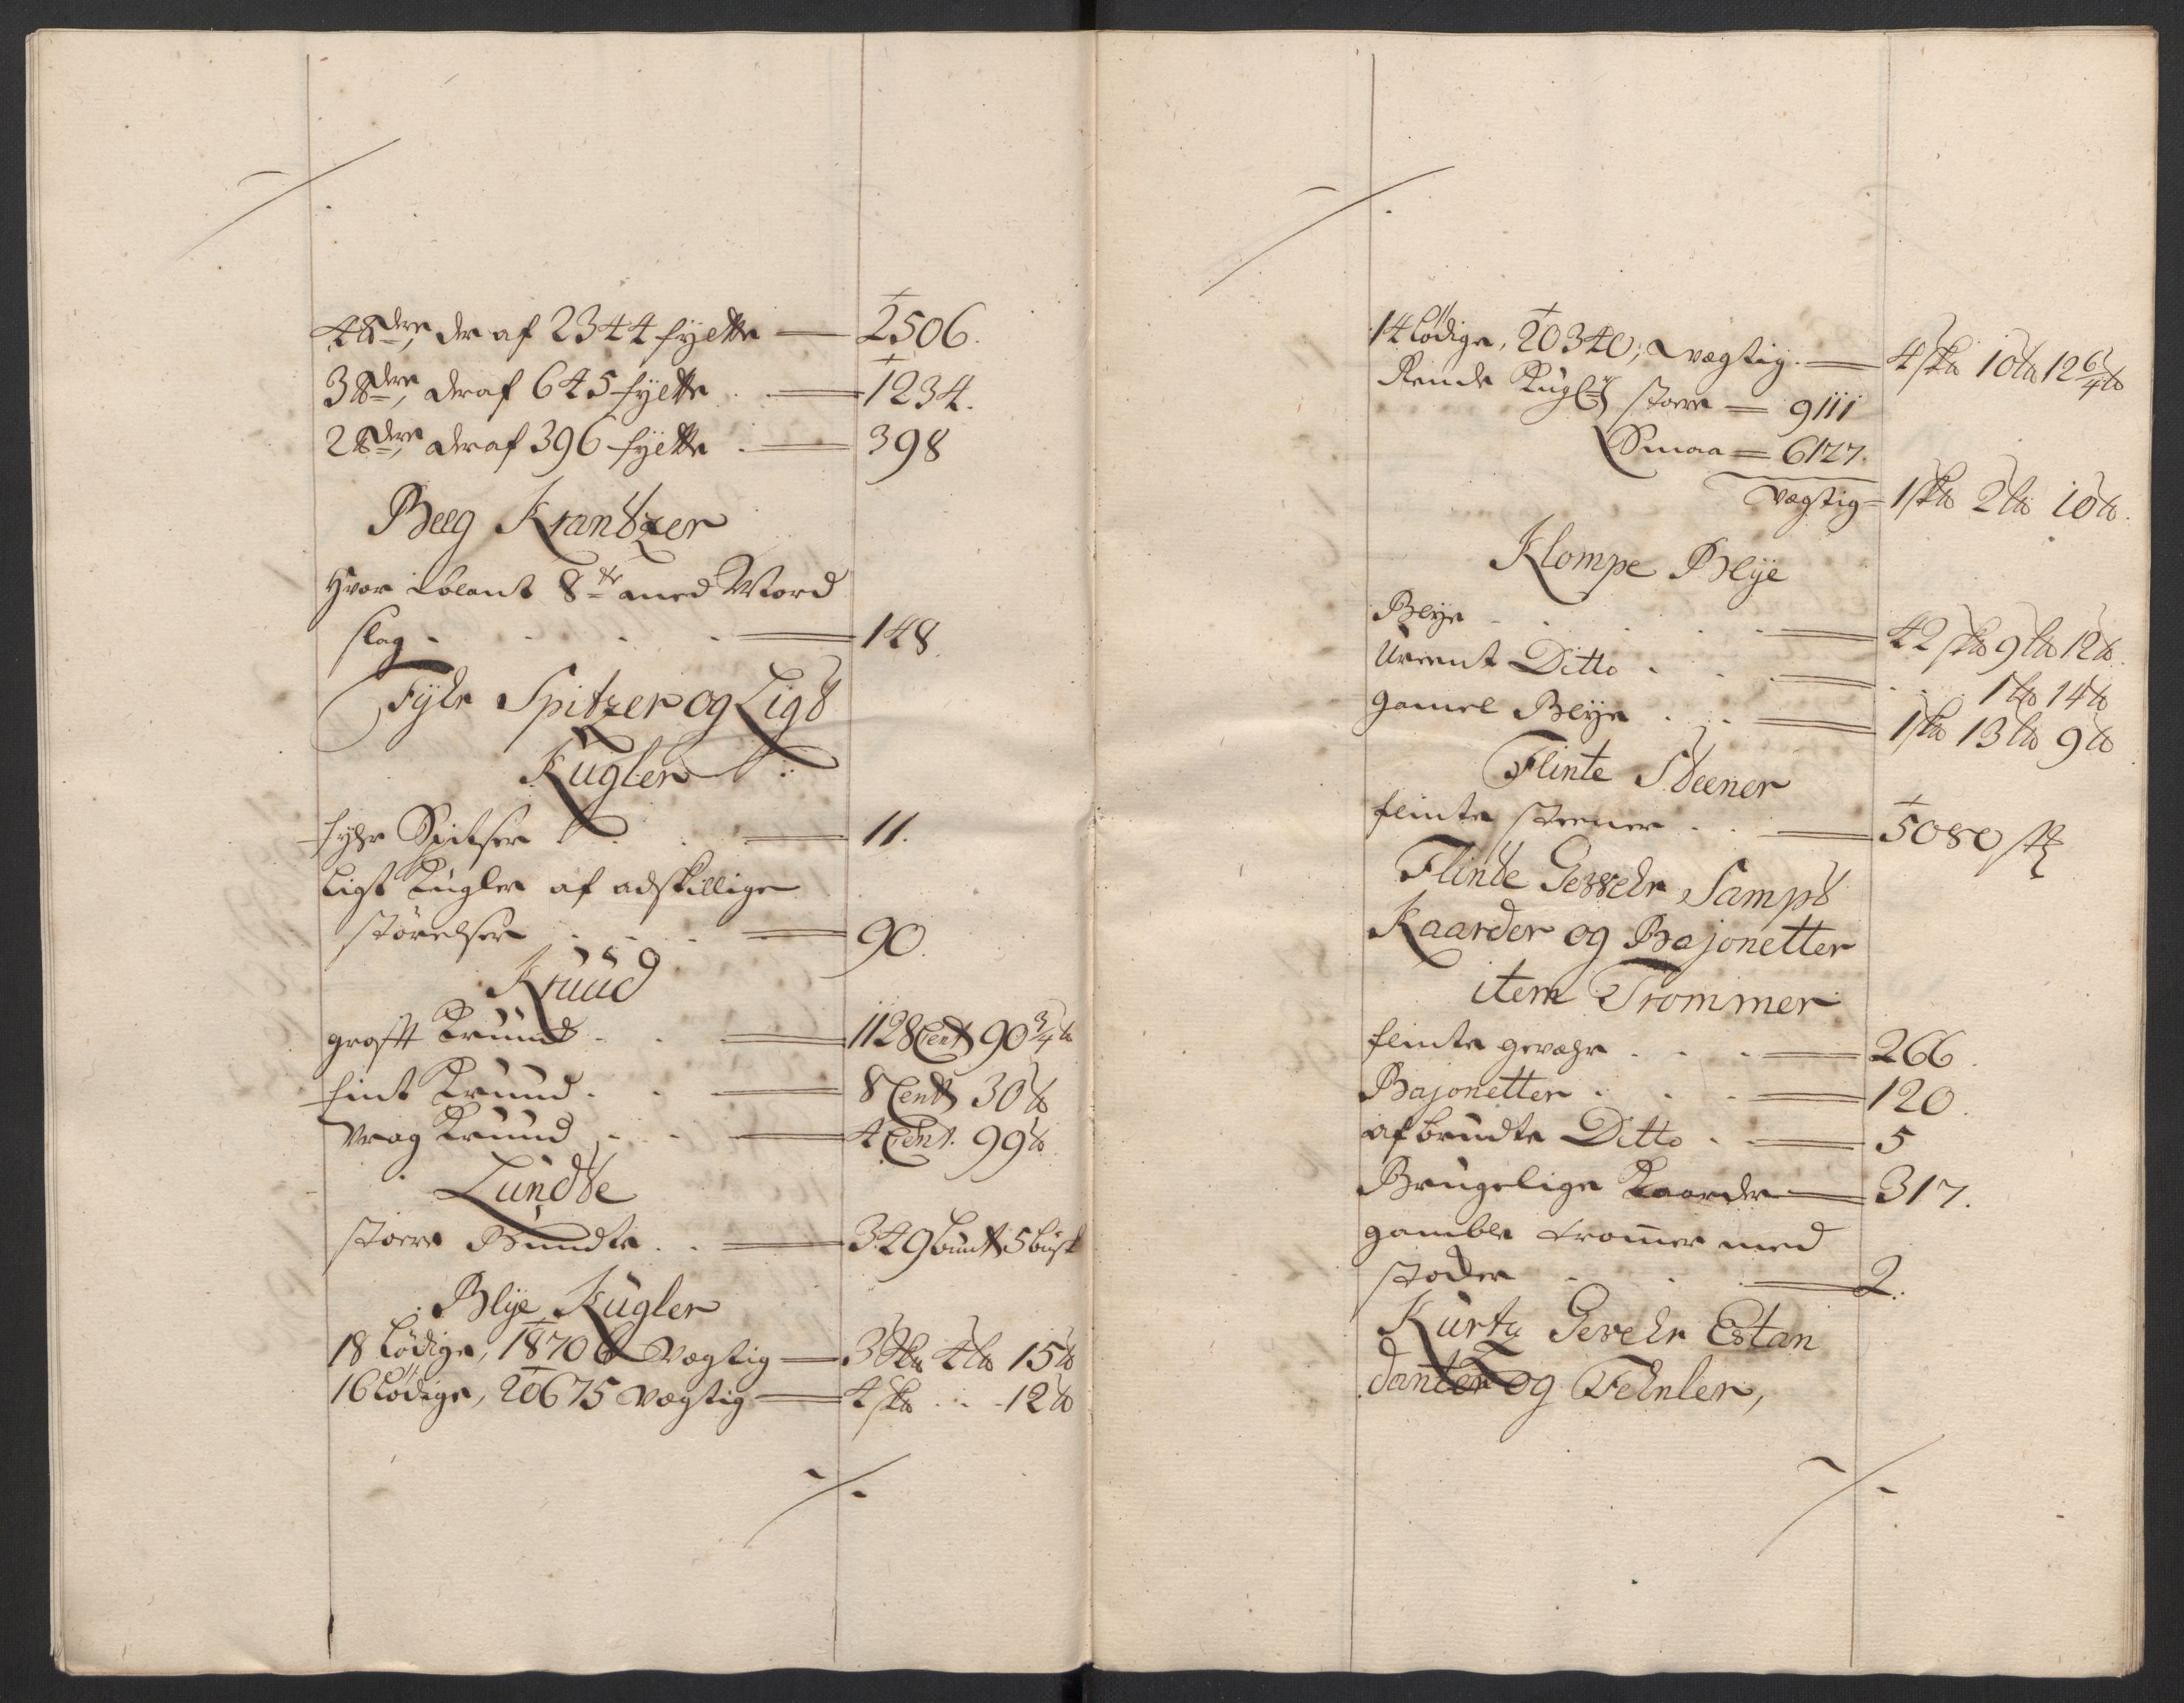 4 ℔dere, der af 2344 fyelte — 2506.
3 ℔dere, deraf 645 fyelte . — 1234.
2 ℔dere, deraf 396 fyelte . — 398
Beeg Krantzer
Hvor iblant 8te med Mord
slag . . . . — 148.
Fyhr Spitzer og Ligt
Kugler
fyhr Spitser . . — 11.
Ligt Kugler af adskillige
störelser . . . — 90.
Kruud
groft Kruud . . — 1128 Cent 90 3/4 ℔
fint Kruud . . — 8 Cent 30 ℔
Vrag Kruud . . — 4 Cent. 99 ℔
Lundte
stoere Bundte . . — 349 bundt 5 bust
Blÿe Kugler
18 Lödige, 18706 Vægtig — 3 s℔ 4 l℔ 15 ℔
16 Lödige, 20675 Vægtig — 4 s℔ . . . 12 ℔
14 Lödige, 20340, vægtig. — 4 s℔ 10 l℔ 12 6/4 ℔
Rende Kugler stoere — 9111
Smaa — 6127.
Vægtig — 1 s℔ 2 l℔ 10 ℔.
Klompe Blÿe
Blÿe . . . . — 42 s℔ 9 l℔ 12 ℔.
Ureent Ditto . . . — . . . 1 l℔ 14 ℔
gamel Blÿe . . . — 1 s℔ 13 l℔ 9 ℔
Flinte Steener
flinte steener . . — 5080 st
Flinte Gewehr Sampt
Kaarder og Bajonetter
item Trommer
flinte gewæhr . . . — 266.
Bajonetter . . . — 120.
afbrudte Ditto . — 5
Brugelige Kaarder — 317.
gamble tromer med
stocker . . . — 2.
Kurtz Gewehr Estan
danter og Fehnler,